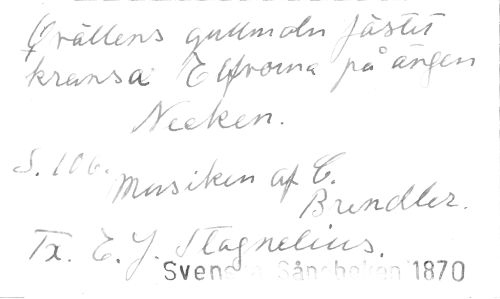 Qvällens gullmoln fästet
kransa Elfvorna på ängen
Necken.
S. 106.
Musiken af C.
Brendler.
Tx. E. J. Stagnelius.
Svenska Sångboken 1870